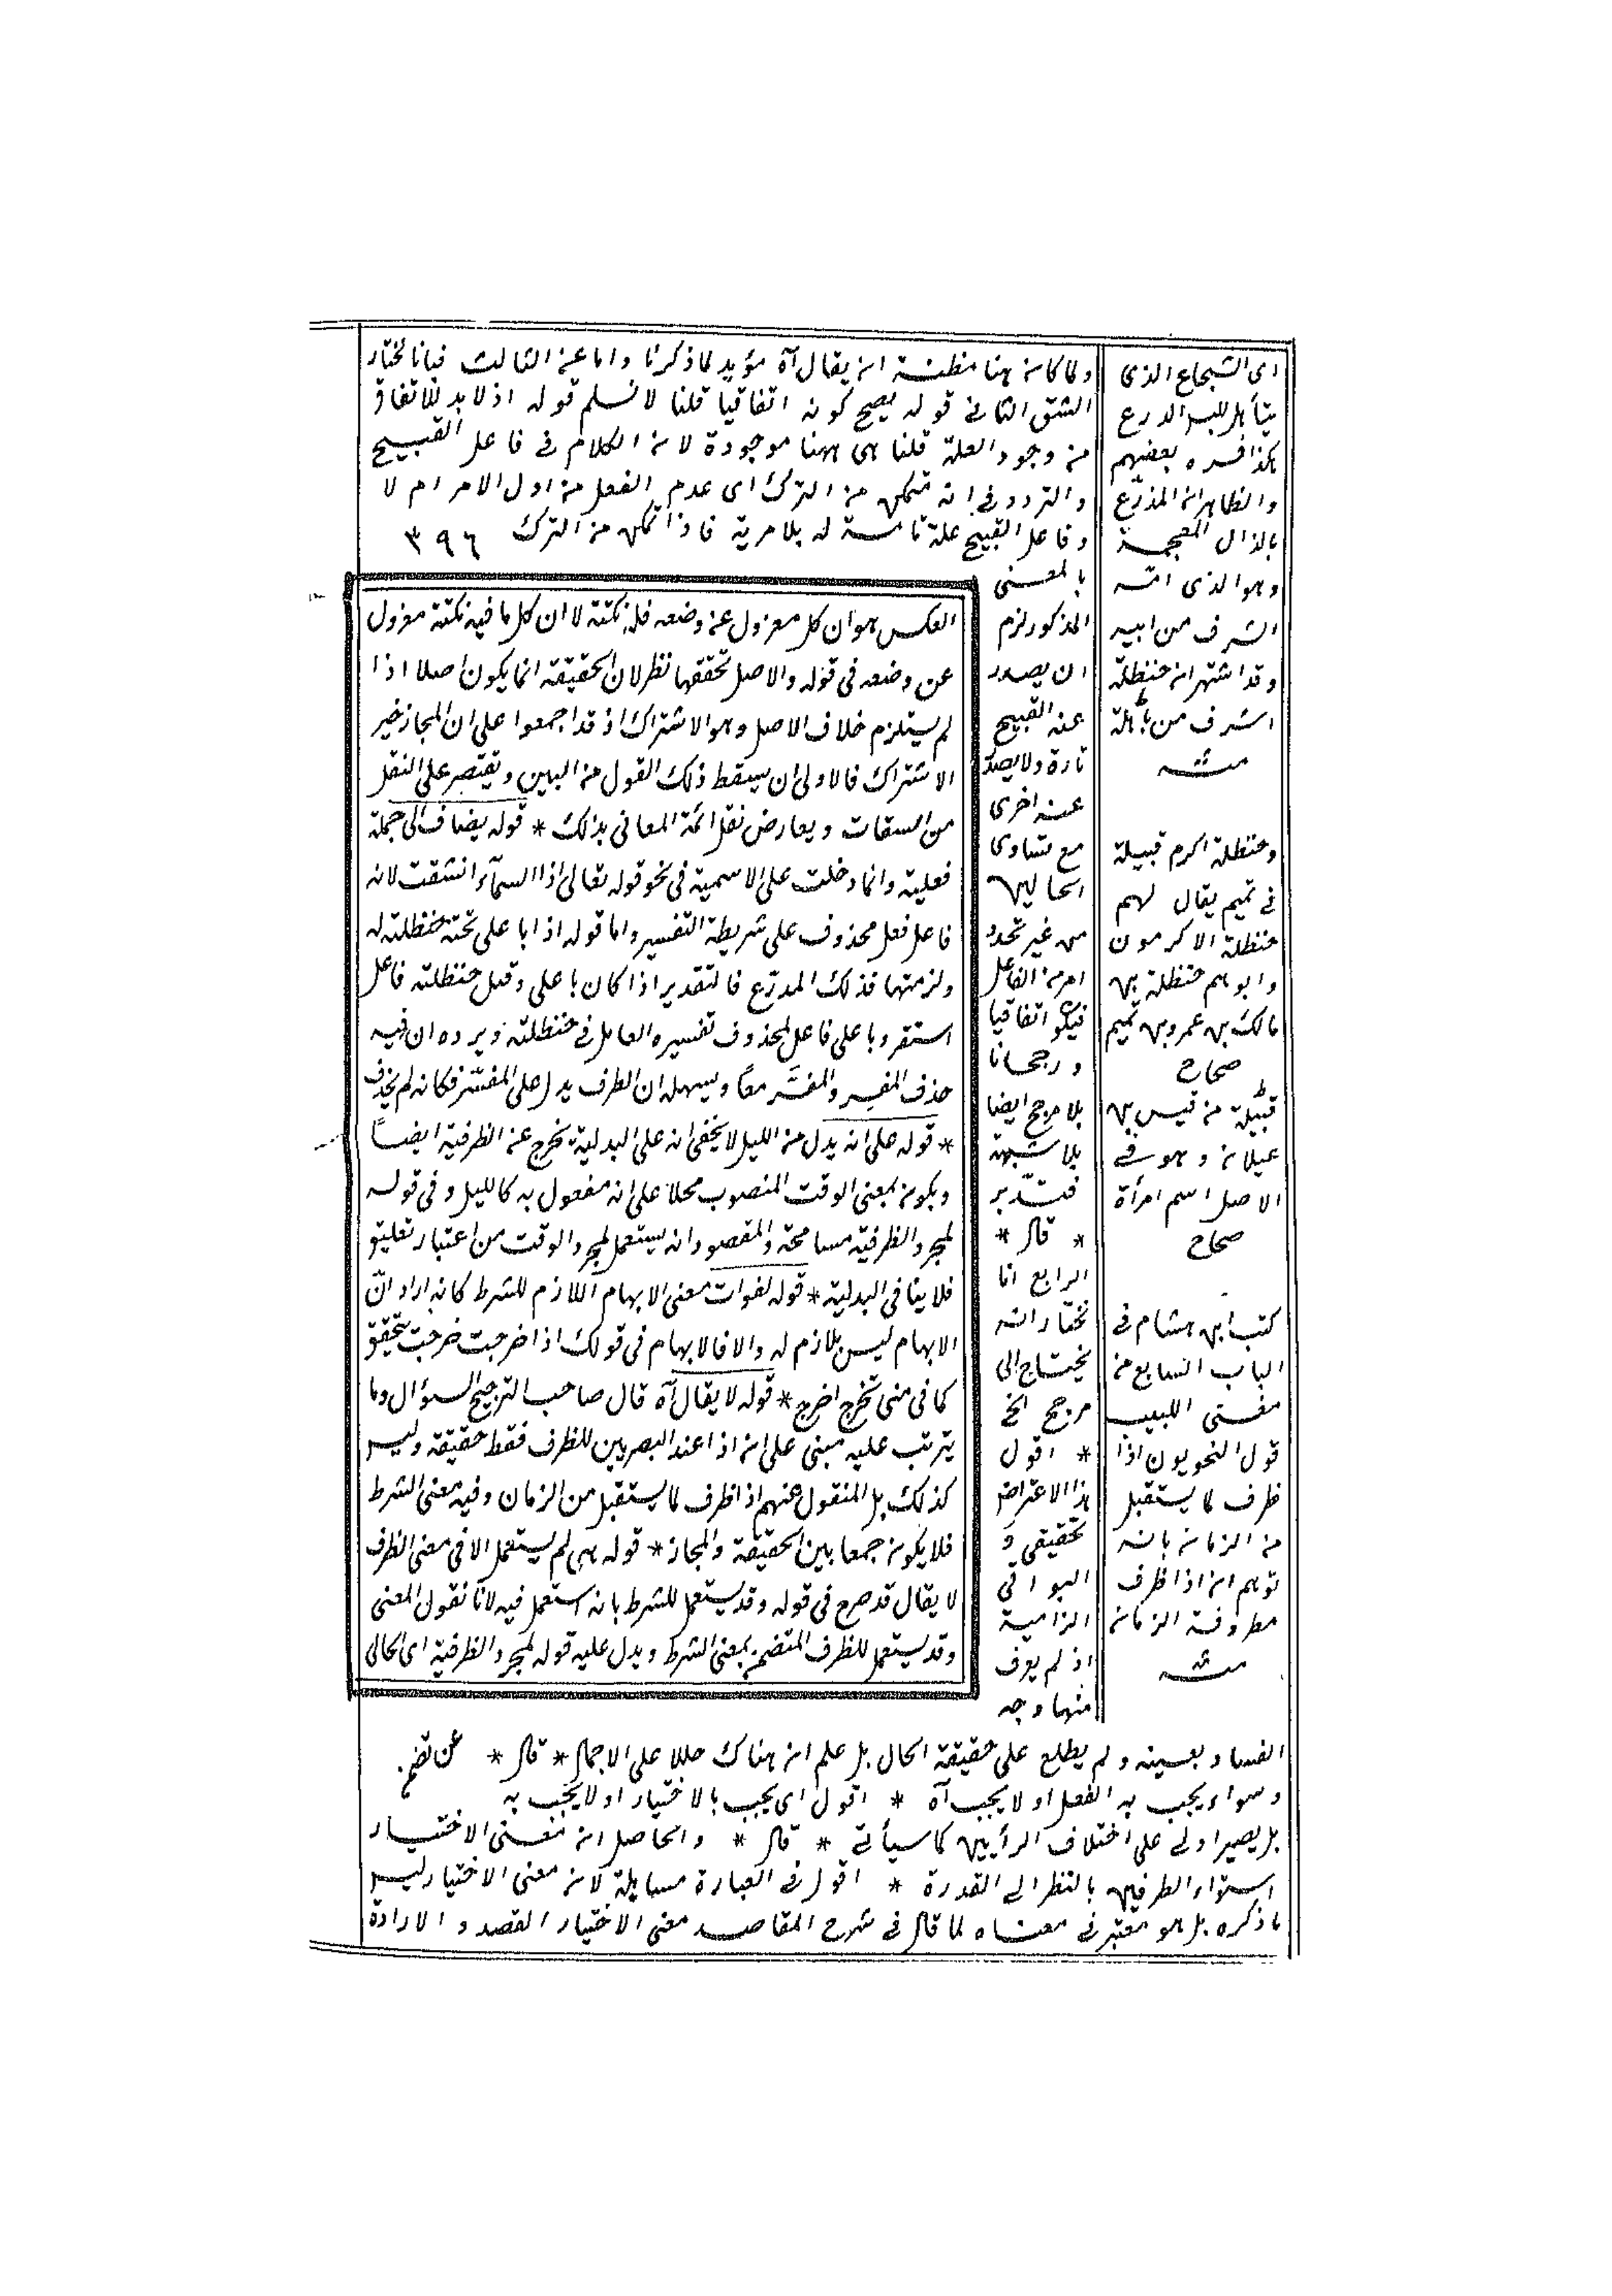 ولما كان هنا مظنة ان يقال آه مؤيد لما ذكرنا واما عن الثالث فبانا نختار
الشق الثاني قوله يصح كونه اتفاقيا قلنا لا نسلم قوله اذ لا بد للاتفاق
من وجود العلة قلنا هي ههنا موجودة لان الكلام في فاعل القبيح
والتردد في انه متمكن من الترك اى عدم الفعل من اول الامر ام لا
وفاعل القبيح علة تامة له بلا مرية فاذا تمكن من الترك ٣٩٦
بالمعنى
المذكور لزم
ان يصدر
عنه القبيح
تارة ولا يصدر
عنه اخرى
مع تساوى
الحالين
من غير تجدد
امر من الفاعل
فيكون اتفاقيا
ورجحانا
بلا مرجح ايضا
بلا شبهة
فتدبر
* قال *
الرابع انا
نختار انه
يحتاج الى
مرجح الخ
* اقول
هذا الاعتراض
تحقيقي و
البواقي
الزامية
اذ لم يعرف
منها وجه
الفساد بعينه ولم يطلع على حقيقة الحال بل علم ان هناك خللا على الاجمال * قال *
وسواء يجب به الفعل او لا يجب آه * اقول اى يجب بالاختيار او لا يجب به
بل يصير اولى على اختلاف الرأيين كما سيأتى * قال * والحاصل ان معنى الاختيار
استواء الطرفين بالنظر الى القدرة * اقول في العبارة مساهلة لان معنى الاختيار ليس
ما ذكره بل هو معتبر في معناه لما قال في شرح المقاصد معنى الاختيار القصد والارادة
العكس هو ان كل معزول عن وضعه فله نكتة لا ان كل ما فيه نكتة معزول
عن وضعه في قوله والاصل تحققها نظر لان الحقيقة انما يكون اصلا اذا
لم يستلزم خلاف الاصل وهو الاشتراك اذ قد اجمعوا على ان المجاز خير
الاشتراك فالاولى ان يسقط ذلك القول من البين ويقتصر على النقل
من الثقات ويعارض نقل ائمة المعاني بذلك * قوله يضاف الى جملة
فعلية وانما دخلت على الاسمية في نحو قوله تعالى اذا السمآء انشقت لانه
فاعل فعل محذوف على شريطة التفسير واما قوله اذا باهلي تحته حنظلته له
ولد منها فذلك المدرّع فالتقدير اذا كان باهلي وقيل حنظلته فاعل
استقر وباهلي فاعل لمحذوف تفسيره العامل في حنظلته ويرده ان فيه
حذف المفسِر والمفسَّر معًا ويسهله ان الظرف يدل على المفسّر فكانه لم يحذف
* قوله على انه بدل من الليل لا يخفى ان على البدلية تخرج عن الظرفية ايضًا
ويكون بمعنى الوقت المنصوب محلا على انه مفعول به كالليل وفي قوله
لمجرد الظرفية مسامحة والمقصود انه يستعمل لمجرد الوقت من اعتبار تعليق
فلا ينافي البدلية * قوله لفوات معنى الابهام اللازم للشرط كانه اراد انّ
الابهام ليس بلازم له والا فالابهام في قولك اذا خرجت خرجت يتحقق
كما في متى تخرج اخرج * قوله لا يقال آه قال صاحب الترجيح السؤال وما
يترتب عليه مبنى على ان اذا عند البصريين للظرف فقط حقيقة وليس
كذلك بل المنقول عنهم اذا ظرف لما يستقبل من الزمان وفيه معنى الشرط
فلا يكون جمعا بين الحقيقة والمجاز * قوله هي لم يستعمل الا في معنى الظرف
لا يقال قد صرح في قوله وقد يستعمل للشرط بانه استعمل فيه لانا نقول المعنى
وقد يستعمل للظرف المتضمن بمعنى الشرط ويدل عليه قوله لمجرد الظرفية اى الخالى
عن تضمن
اى الشجاع الذى
يتأهل للبس الدرع
هكذا فسره بعضهم
والظاهر ان المذرّع
بالذال المعجمة
وهو الذى امه
اشرف من ابيه
وقد اشتهر ان حنظلة
اشرف من باهلة
منه
وحنظلة اكرم قبيلة
في تميم يقال لهم
حنظلة الاكرمون
وابوهم حنظلة بن
مالك بن عمرو بن تميم
صحاح
قبيلة من قيس بن
عيلان وهو في
الاصل اسم امرأة
صحاح
كتب ابن هشام في
الباب السابع من
مغنى اللبيب
قول النحويون اذا
ظرف لما يستقبل
من الزمان بانه
توهم ان اذا ظرف
مظروفة الزمان
منه